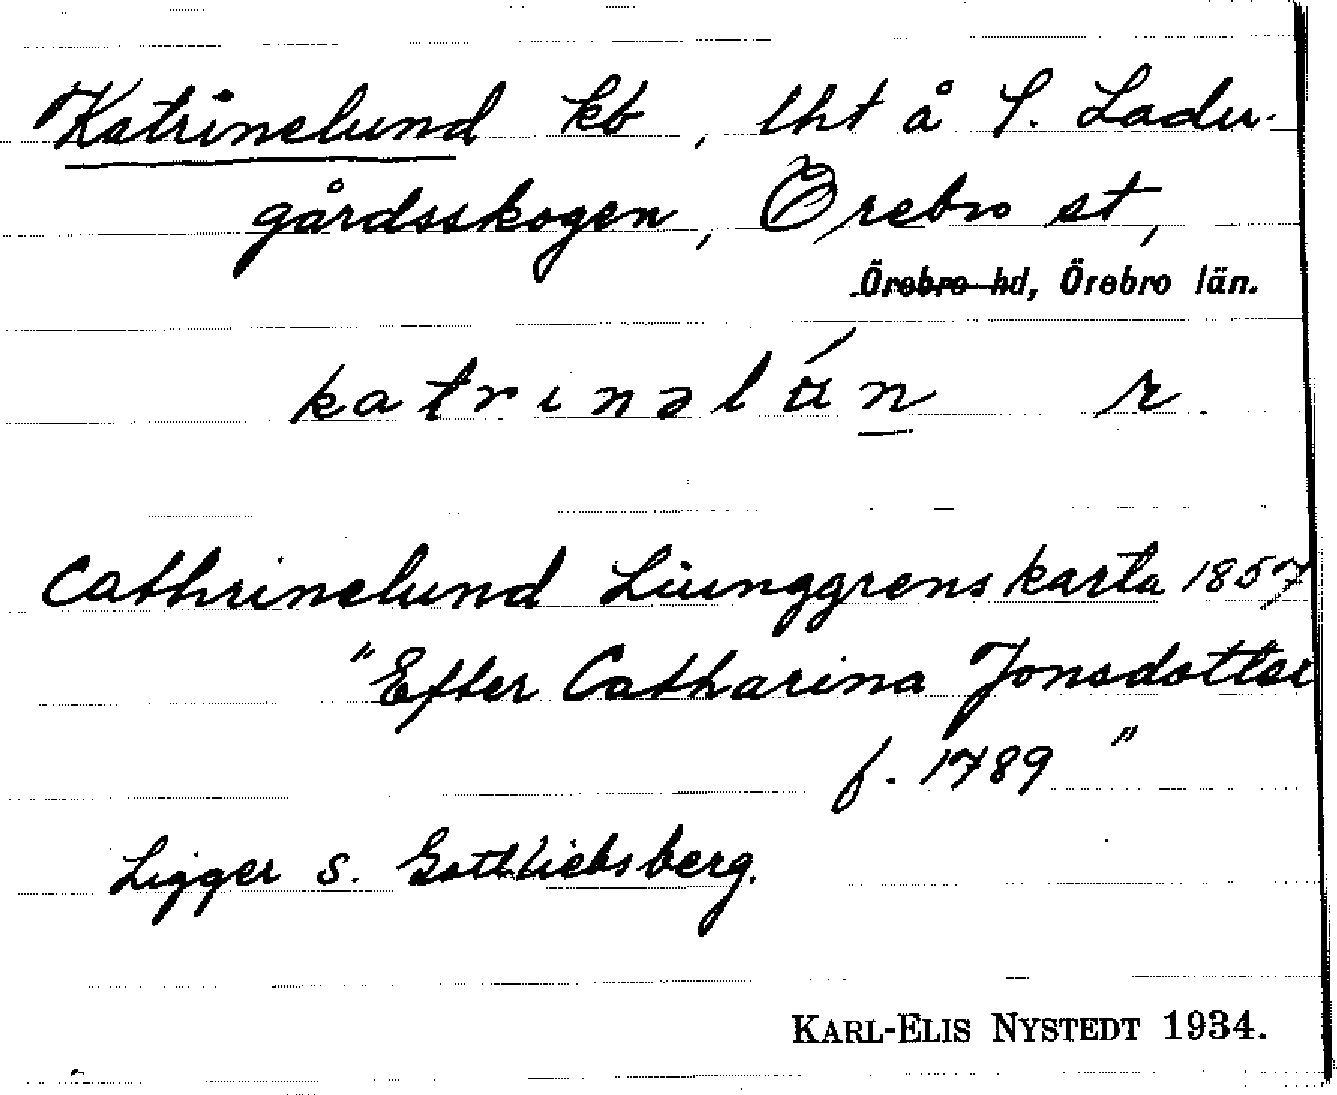 Katrinelund kb, lht å S. Ladu-
gårdsskogen, Örebro st,
Örebro hd, Örebro län.
katrinəlún r.
Cathrinelund Liunggrens karta 1857
"Efter Catharina Jonsdotter
f. 1789"
Ligger s. Gottliebsberg.
KARL-ELIS NYSTEDT 1934.